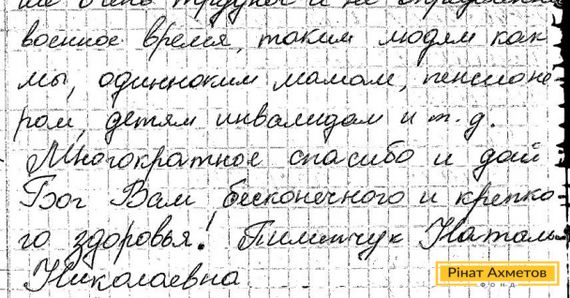 очень трудное и не
военное время, таким людям как
мы, одиноким мамам, пенсионе
рам, детям инвалидам и т.д.
Многократное спасибо и дай
Бог Вам бесконечного и крепко-
го здоровья! Пилипчук Наталь
Николаевна
Рінат Ахметов
ФОНД